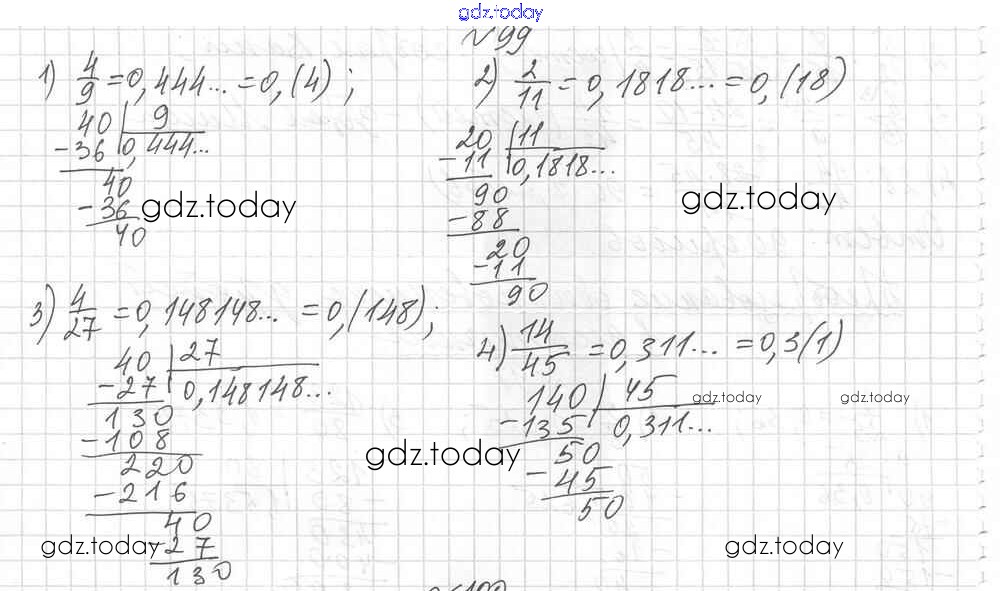 gdz.today
№99
1) 4/9 = 0,444... = 0,(4);
40 | 9
-36 0,444...
40
-36
40
gdz.today
2) 2/11 = 0,1818... = 0,(18)
20 | 11
-11 0,1818...
90
-88
20
-11
90
gdz.today
3) 4/27 = 0,148148... = 0,(148);
40 | 27
-27 0,148148...
130
-108
220
-216
40
-27
130
gdz.today
gdz.today
4) 14/45 = 0,311... = 0,3(1)
140 | 45
-135 0,311...
50
-45
50
gdz.today
gdz.today
gdz.today